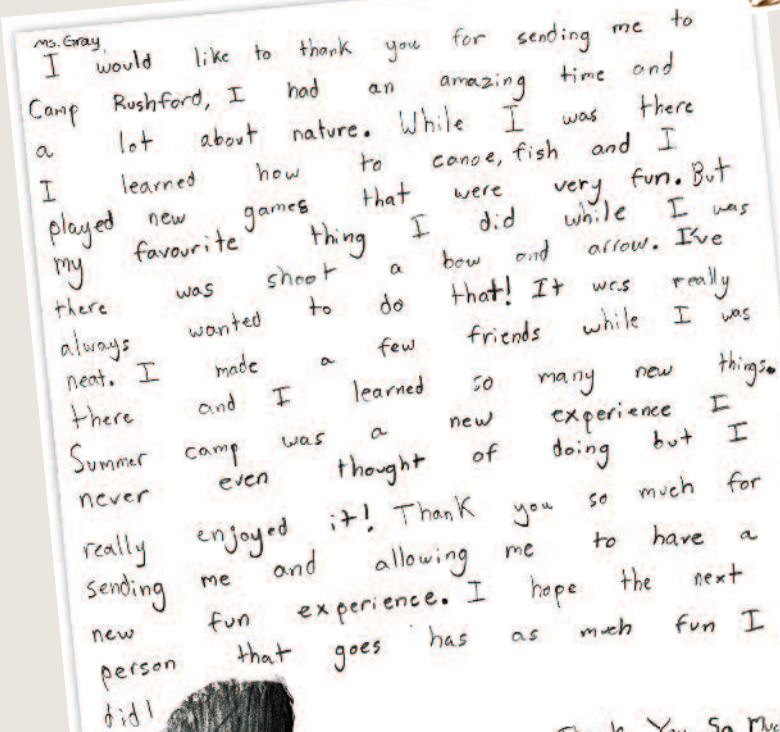 Ms. Gray,
I would like to thank you for sending me to
Camp Rushford, I had an amazing time and
a lot about nature. While I was there
I learned how to canoe, fish and I
played new games that were very fun. But
my favourite thing I did while I was
there was shoot a bow and arrow. I've
always wanted to do that! It was really
neat. I made a few friends while I was
there and I learned so many new things.
Summer camp was a new experience I
never even thought of doing but I
really enjoyed it! Thank you so much for
sending me and allowing me to have a
new fun experience. I hope the next
person that goes has as much fun I
did!
You So